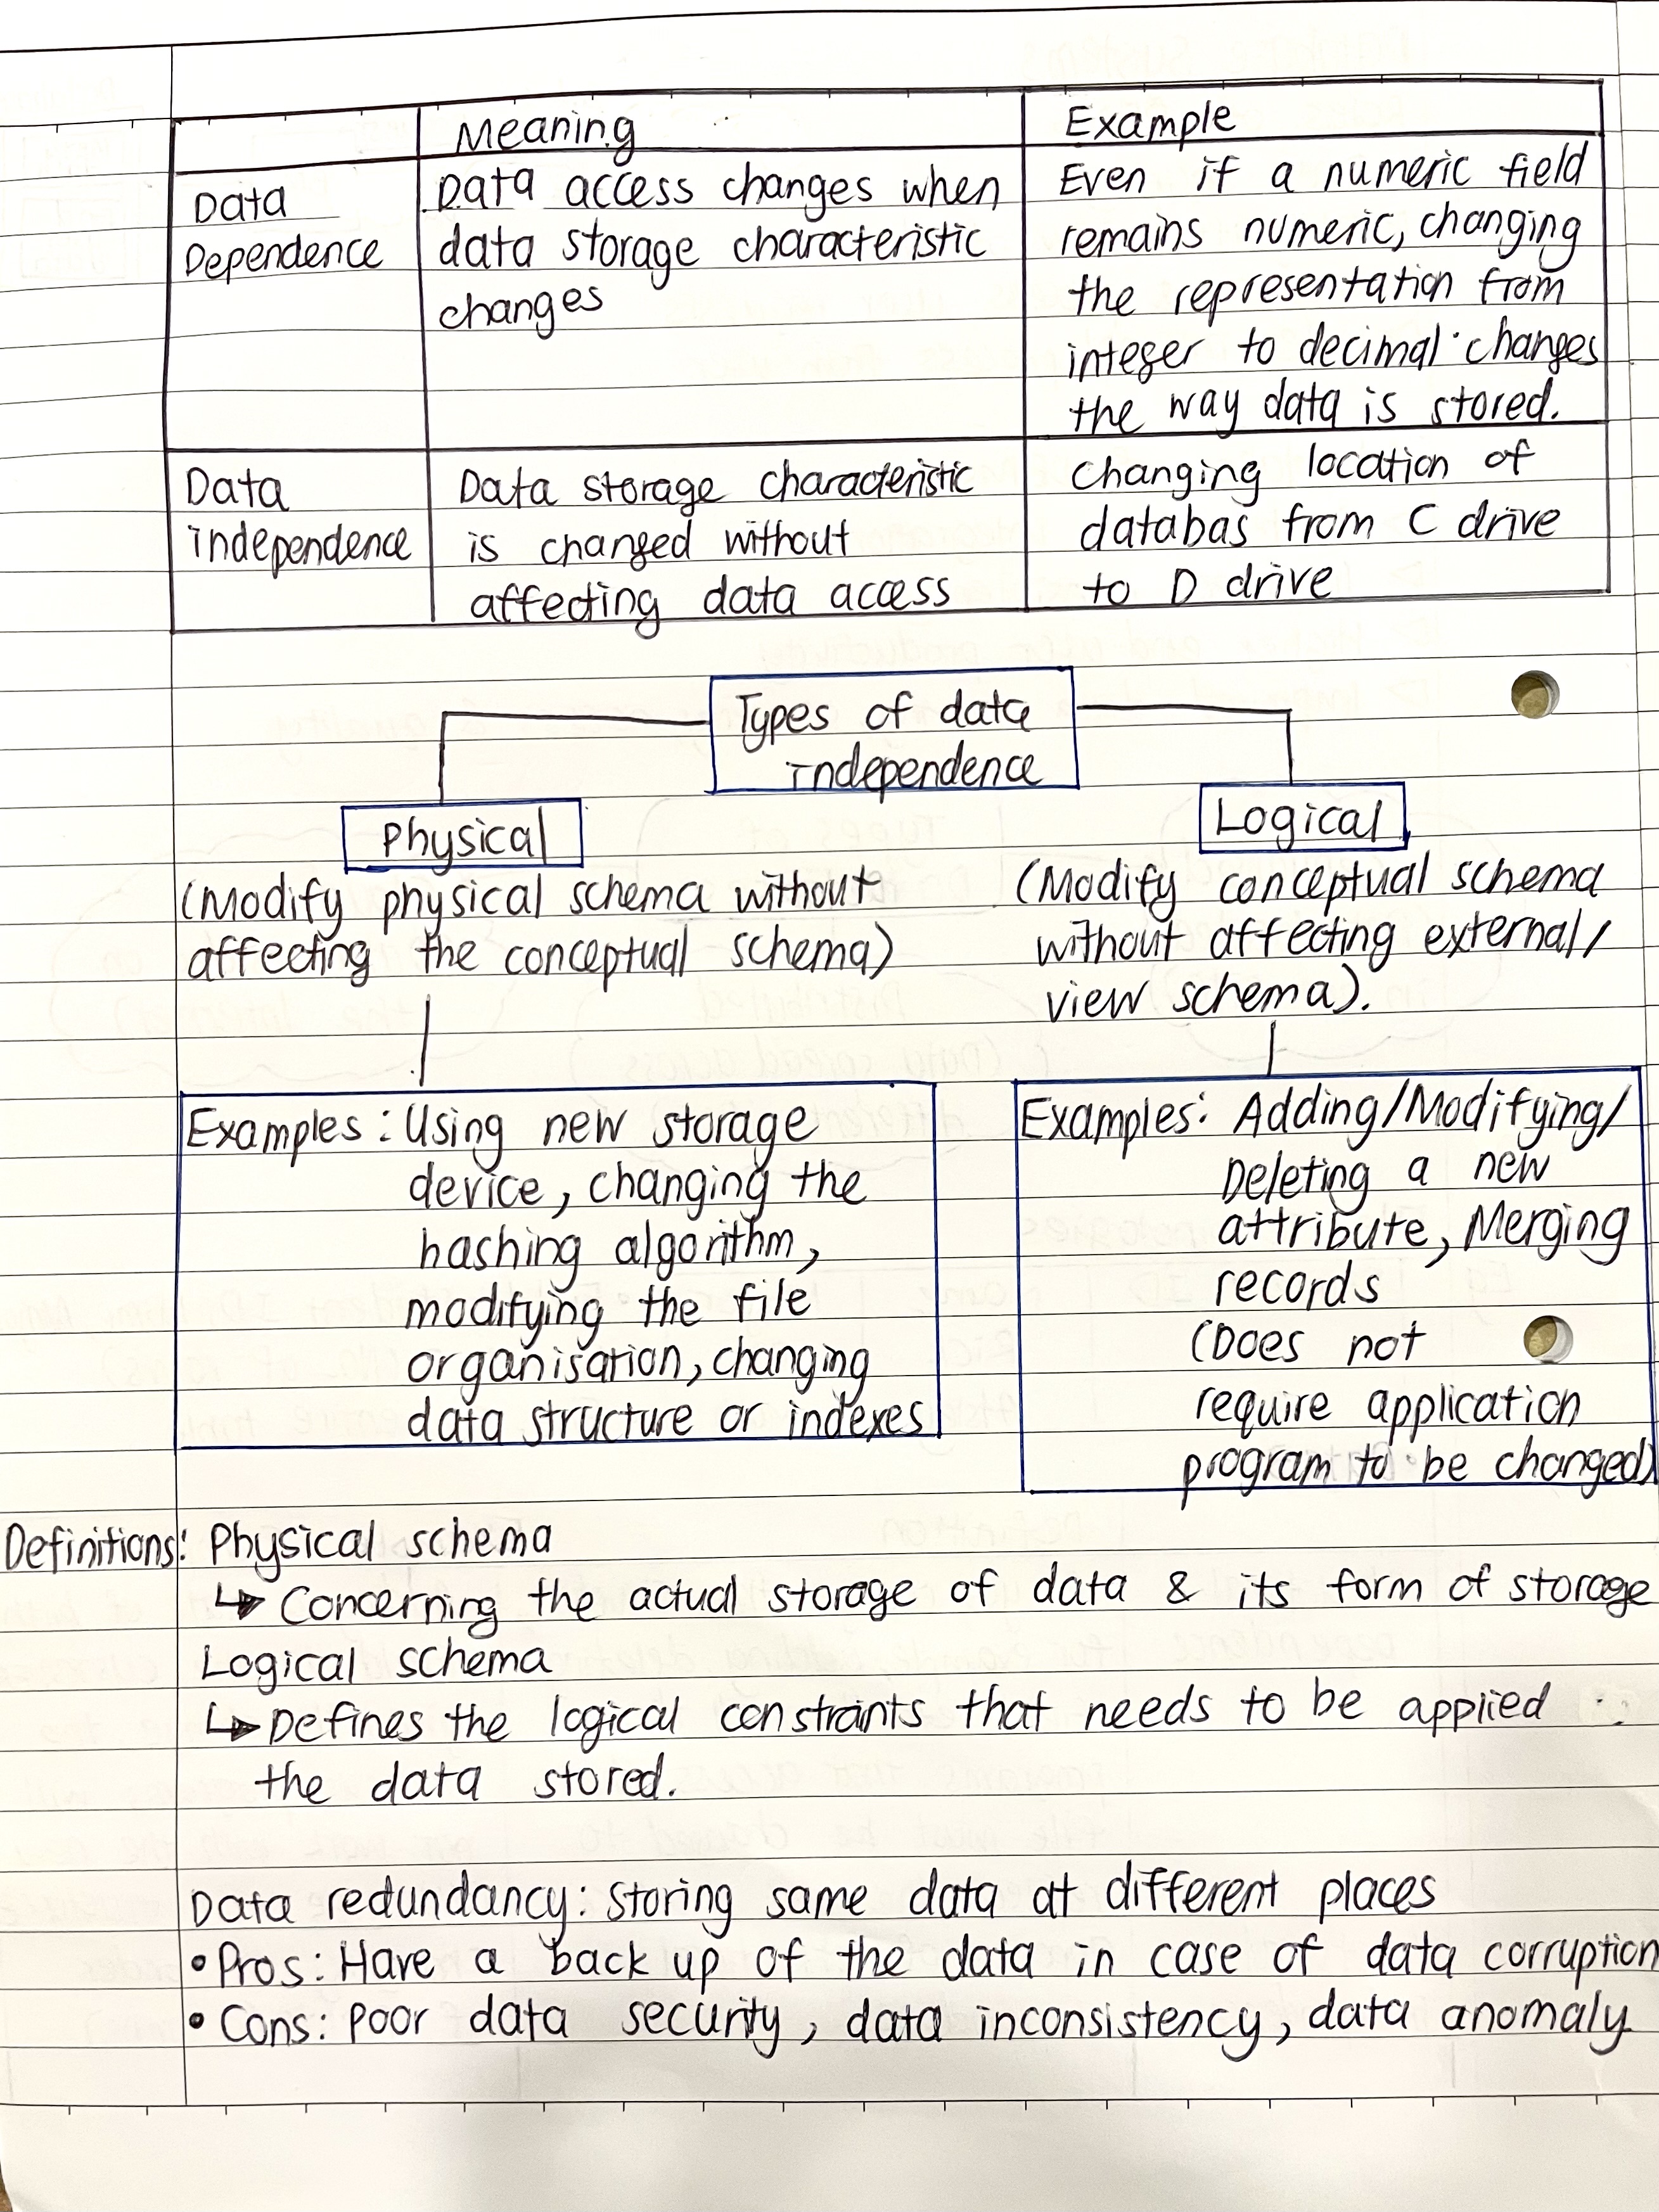 Meaning
Example
Data
Dependence
Data access changes when
data storage characteristic
changes
Even if a numeric field
remains numeric, changing
the representation from
integer to decimal changes
the way data is stored.
Data
independence
Data storage characteristic
is changed without
affecting data access
Changing location of
databas from C drive
to D drive
Types of data
independence
Physical
(Modify physical schema without
affecting the conceptual schema)
Logical
(Modify conceptual schema
without affecting external/
view schema).
Examples: Using new storage
device, changing the
hashing algorithm,
modifying the file
organisation, changing
data structure or indexes
Examples: Adding/Modifying/
Deleting a new
attribute, Merging
records
(Does not
require application
program to be changed)
Definitions: Physical schema
↳ Concerning the actual storage of data & its form of storage
Logical schema
↳ Defines the logical constraints that needs to be applied
the data stored.
Data redundancy: Storing same data at different places
• Pros: Have a back up of the data in case of data corruption
• Cons: Poor data security, data inconsistency, data anomaly